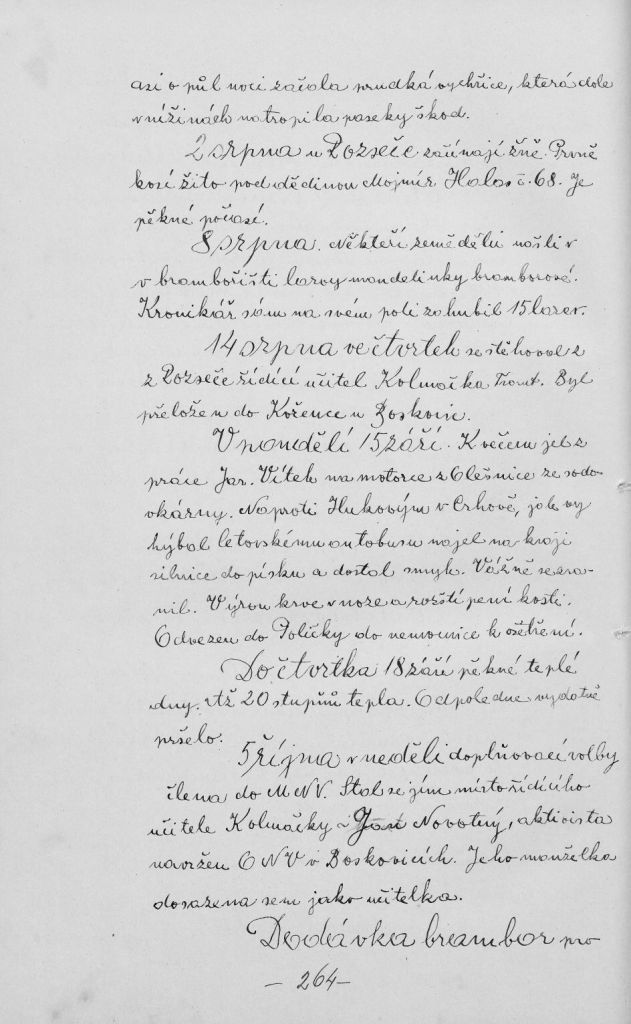 asi o půl noci začala prudká vychřice, která dole
v nížinách natropila paseky škod.
2 srpna u Rozseče začínají žně. Prvně
kosí žito pod dědinou Mojmír Halas č. 68. Je
pěkné počasí.
8 srpna. Někteří zemědělci našli v
v brambořišti larvy mandelinky bramborové.
Kronikář sám na svém poli zahubil 15 larev.
14 srpna ve čtvrtek se stěhoval z
z Rozseče řídící učitel Kolmačka Frant. Byl
přeložen do Kořence u Boskovic.
V pondělí 15 září. K večeru jel z
práce Jar. Vítek na motorce z Olešnice ze sodo-
vkárny. Naproti Hlukovým v Crhově, jak vy
hýbal letovskému autobusu najel na kraji
silnice do písku a dostal smyk. Vážně se zra-
nil. Výron krve v noze a rozštípení kosti.
Odvezen do Poličky do nemocnice k ošetření.
Do čtvrtka 18 září pěkné teplé
dny. Až 20 stupňů tepla. Odpoledne vydatně
pršelo.
5 října v neděli doplňovací volby
člena do MNV. Stal se jím místo řídícího
učitele Kolmačky - Jan Novotný, aktivista
navržen ONV v Boskovicích. Jeho manželka
dosazena sem jako učitelka.
Dodávka brambor pro
- 264 -